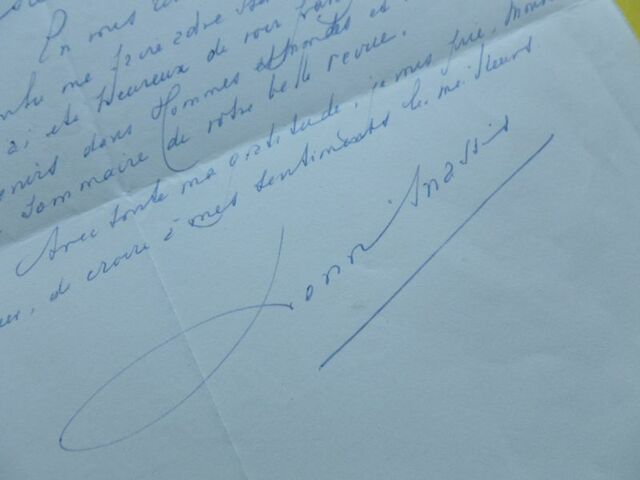 En vous
me faire adre
été heureux de voir
dans Hommes et mondes et
sommaire de votre belle revue.
Avec toute ma gratitude, je vous prie,
, de croire à mes sentiments les meilleurs
Massis